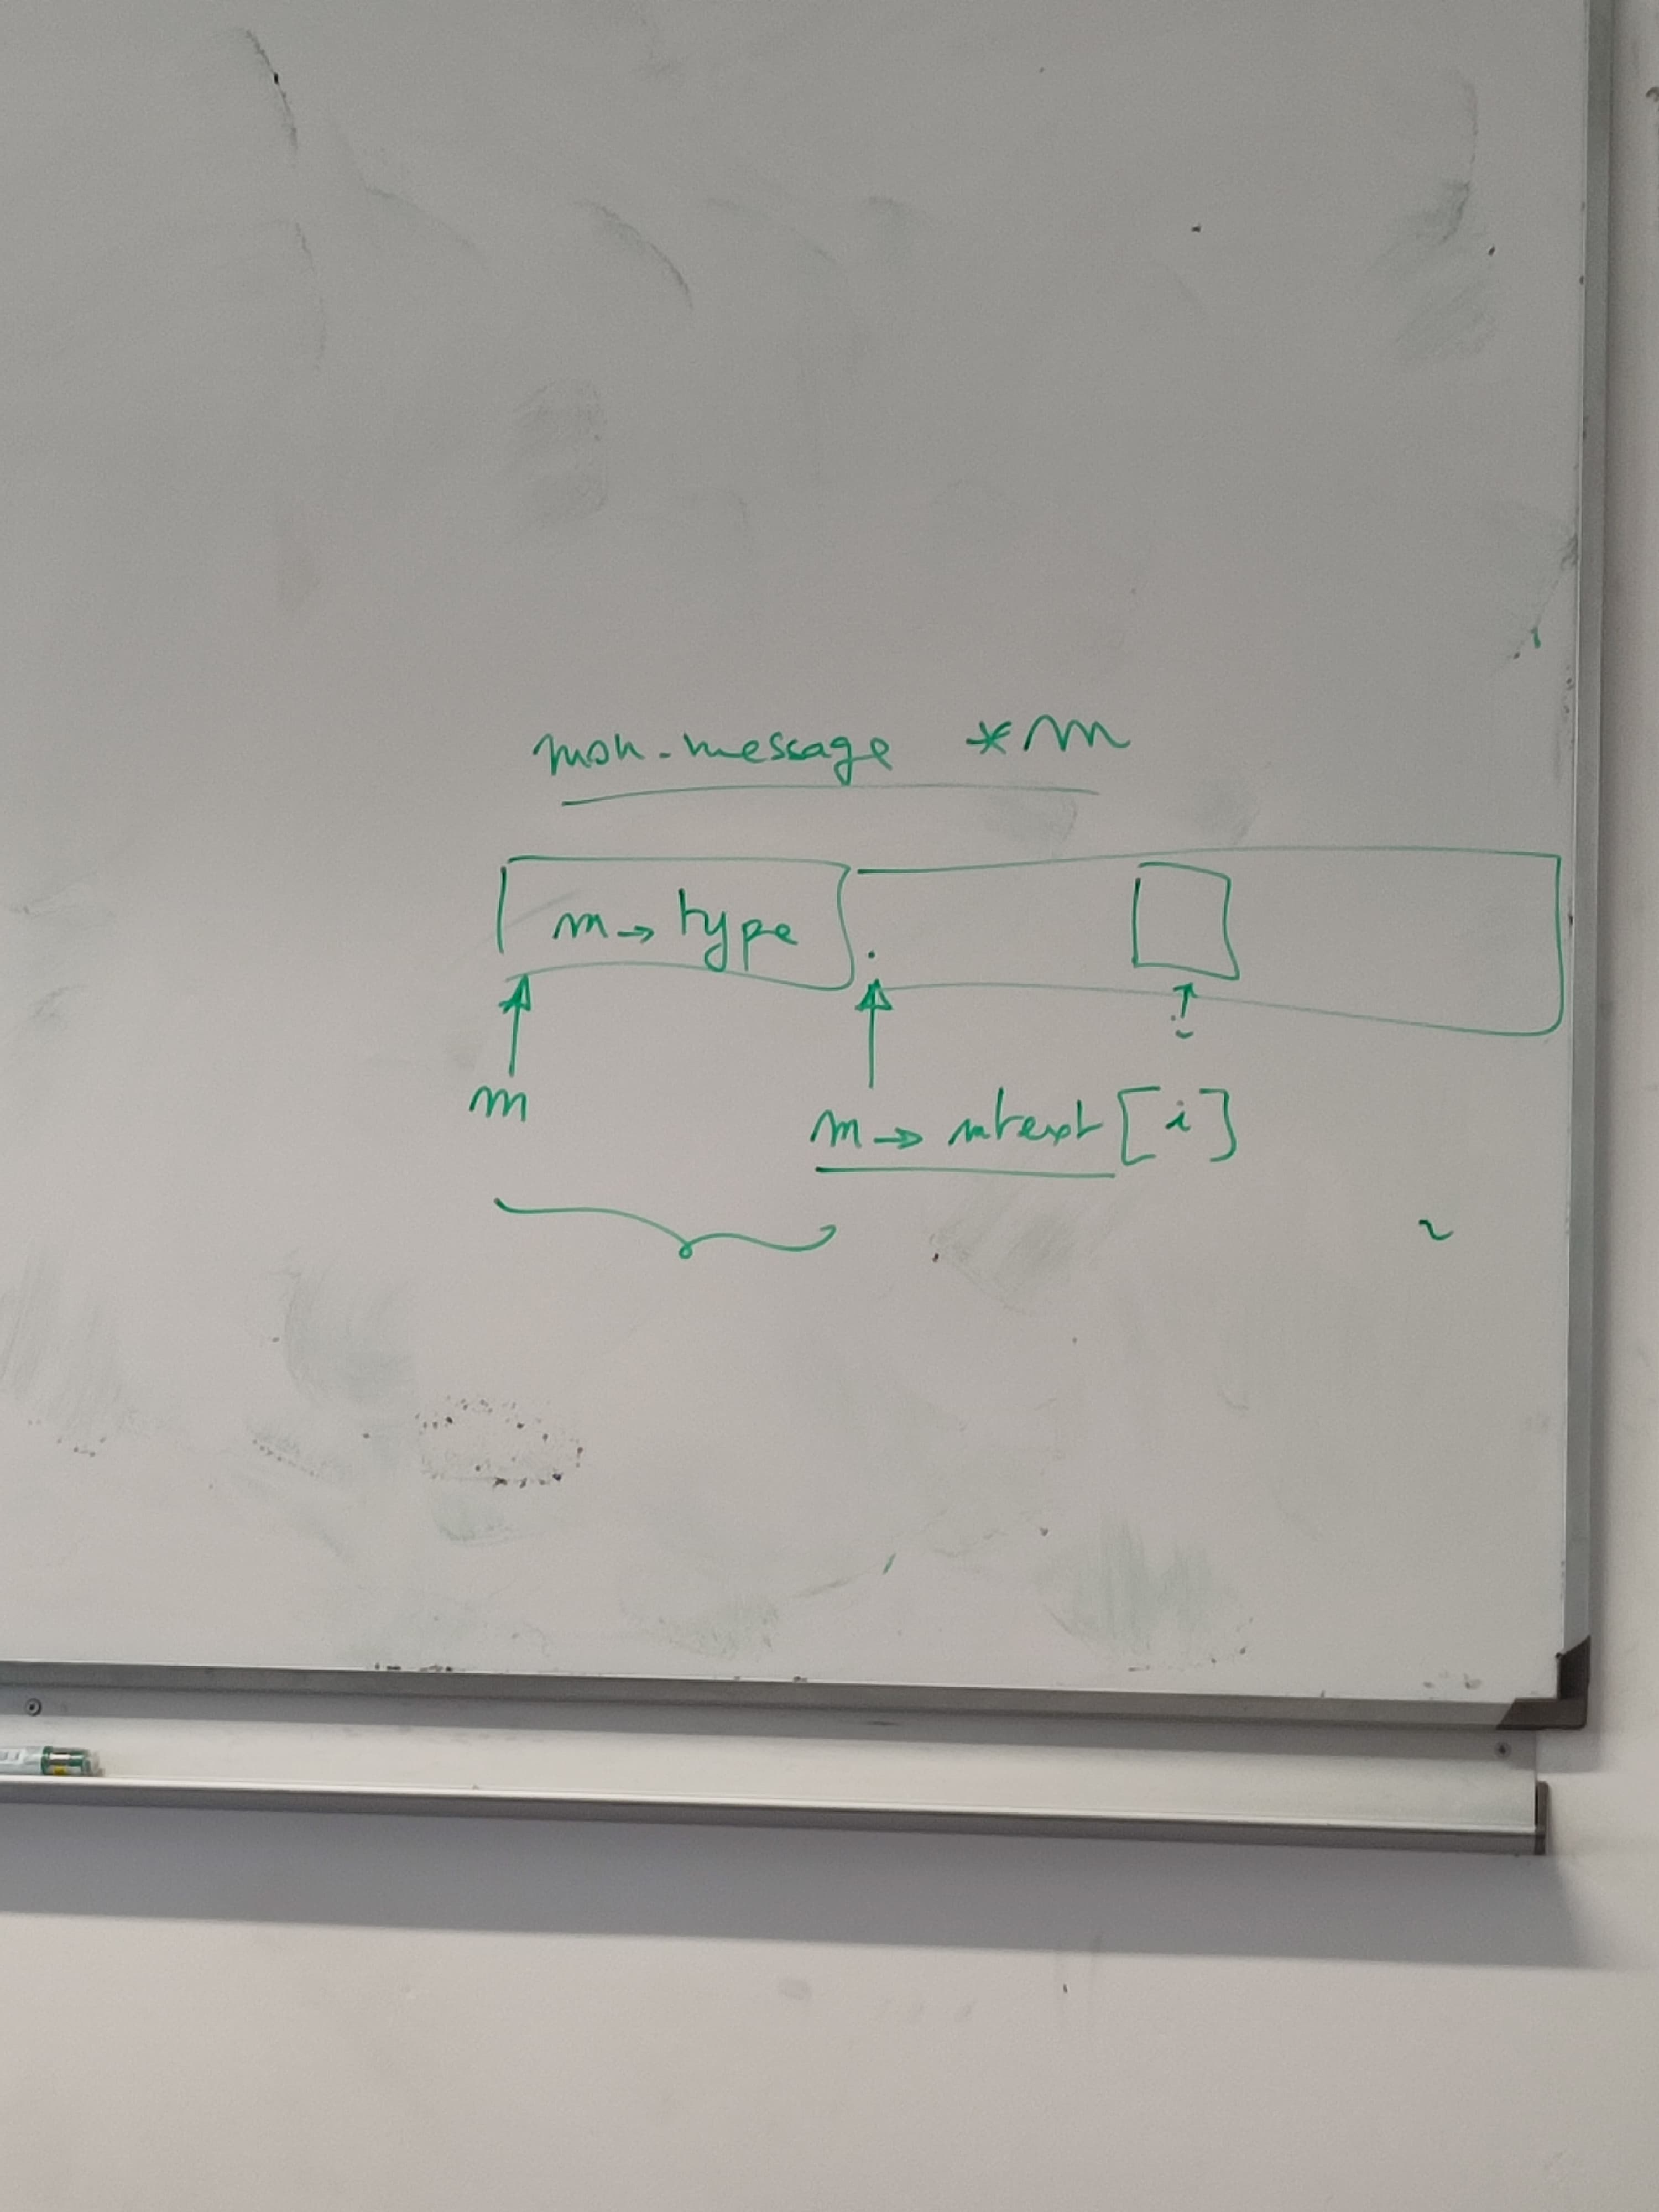 mon_message *m
m → type
i
m
m → mtext [i]